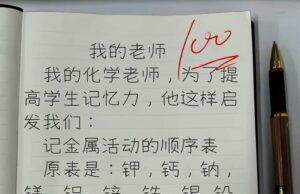 我的老师
100
我的化学老师，为了提
高学生记忆力，他这样启
发我们：
记金属活动的顺序表
原表是：钾，钙，钠，
镁，铝，锌，铁，锡，铅